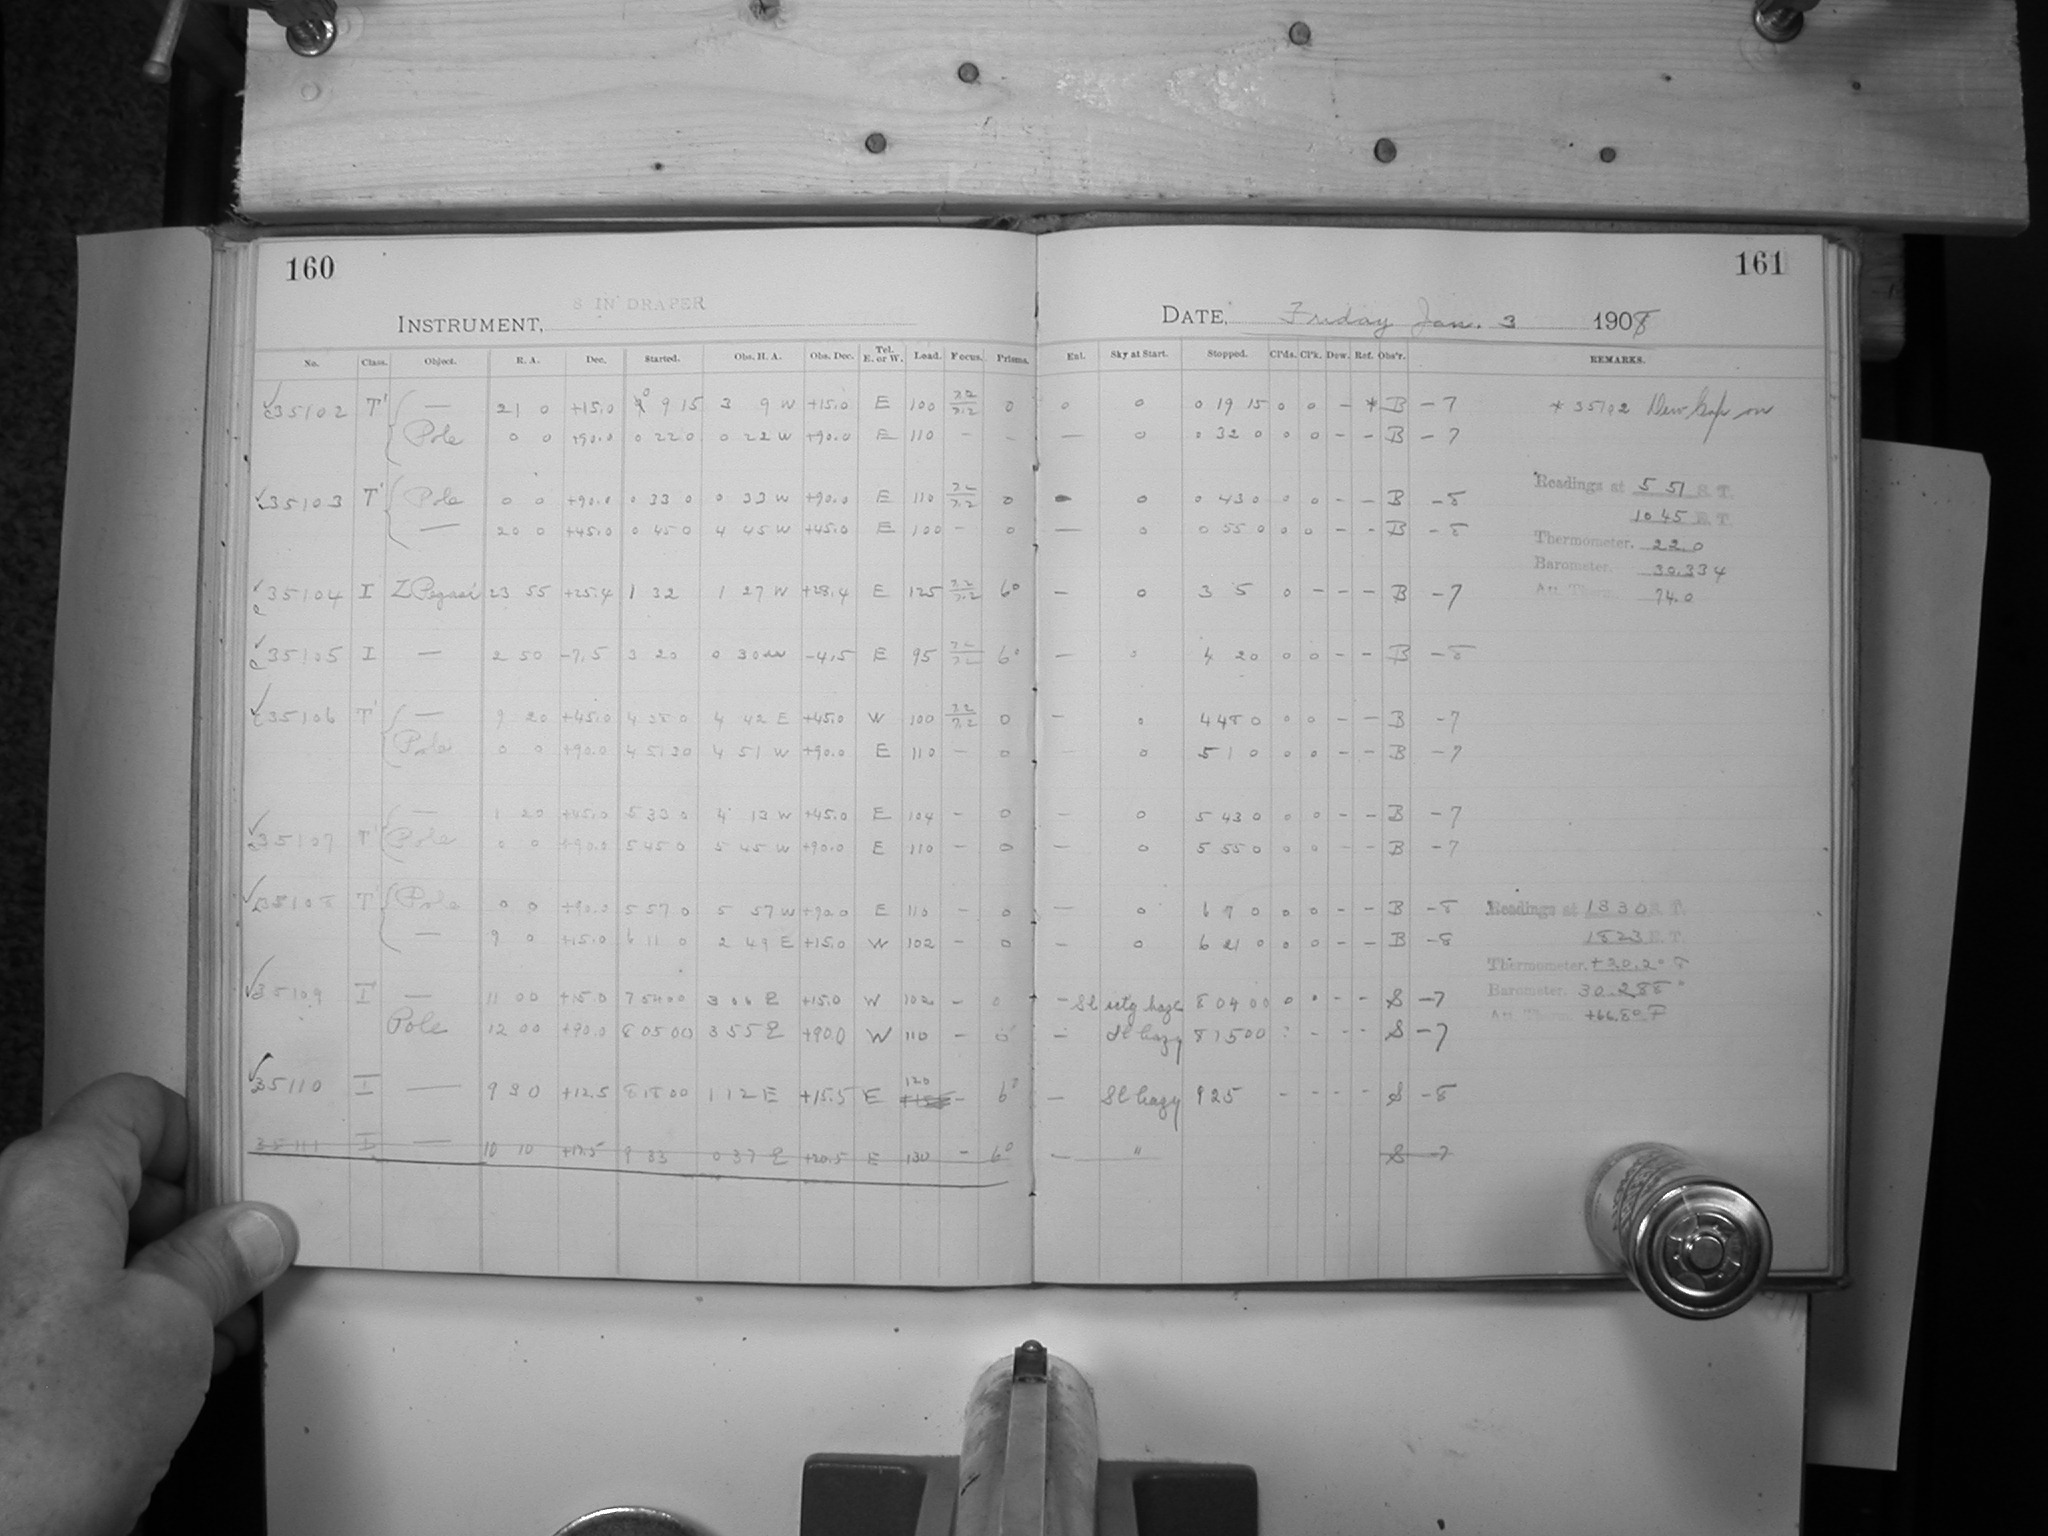 160
8 IN DRAPER
INSTRUMENT,
No. Class. Object. R. A. Dec. Started. Obs. H. A. Obs. Dec. Tel. E. or W. Load. Focus. Prisms.
35102 T' — 21 0 +15.0 0 9 15 3 9 W +15.0 E 100 7.2/7.2 0
Pole 0 0 +90.0 0 22 0 0 22 W +90.0 E 110 - -
35103 T' Pole 0 0 +90.0 0 33 0 0 33 W +90.0 E 110 7.2/7.2 0
— 20 0 +45.0 0 45 0 4 45 W +45.0 E 100 - 0
35104 I Z Pegasi 23 55 +25.4 1 32 1 27 W +28.4 E 125 7.2/7.2 6°
35105 I — 2 50 -7.5 3 20 0 30 W -4.5 E 95 7.2/7.2 6°
35106 T' — 9 20 +45.0 4 38 0 4 42 E +45.0 W 100 7.2/7.2 0
Pole 0 0 +90.0 4 51 30 4 51 W +90.0 E 110 - 0
— 1 20 +45.0 5 33 0 4 13 W +45.0 E 104 - 0
35107 T' Pole 0 0 +90.0 5 45 0 5 45 W +90.0 E 110 - 0
35108 T' Pole 0 0 +90.0 5 57 0 5 57 W +90.0 E 110 - 0
— 9 0 +15.0 6 11 0 2 49 E +15.0 W 102 - 0
35109 I' — 11 00 +15.0 7 54 00 3 06 E +15.0 W 102 - 0
Pole 12 00 +90.0 8 05 00 3 55 E +90.0 W 110 - 0
35110 I — 9 30 +12.5 8 18 00 1 12 E +15.5 E 120 - 6°
35111 I — 10 10 +17.5 9 33 0 37 E +20.5 E 130 - 6°
161
DATE, Friday Jan. 3 1908
Enl. Sky at Start. Stopped. Cl'ds. Cl'k. Dew. Ref. Obs'r. REMARKS.
0 0 0 19 15 0 0 - * B -7 * 35102 New Cap on
— 0 0 32 0 0 0 - - B -7
0 0 43 0 0 0 - - B -8
— 0 0 55 0 0 0 - - B -8
— 0 3 5 0 - - - B -7
— 0 4 20 0 0 - - B -8
— 0 4 48 0 0 0 - - B -7
0 5 1 0 0 0 - - B -7
— 0 5 43 0 0 0 - - B -7
— 0 5 55 0 0 0 - - B -7
— 0 6 7 0 0 0 - - B -8
— 0 6 21 0 0 0 - - B -8
— Sl sctg haze 8 04 00 0 0 - - S -7
— Sl hazy 8 15 00 : - - - S -7
— Sl hazy 9 25 - - - - S -8
— " S -7
Readings at 5 51 S. T.
10 45 E. T.
Thermometer. 22.0
Barometer. 30.334
Att. Therm. 74.0
Readings at 13 30 S. T.
18 23 E. T.
Thermometer. +20.2°
Barometer. 30.288
Att. Therm. +66.8° F